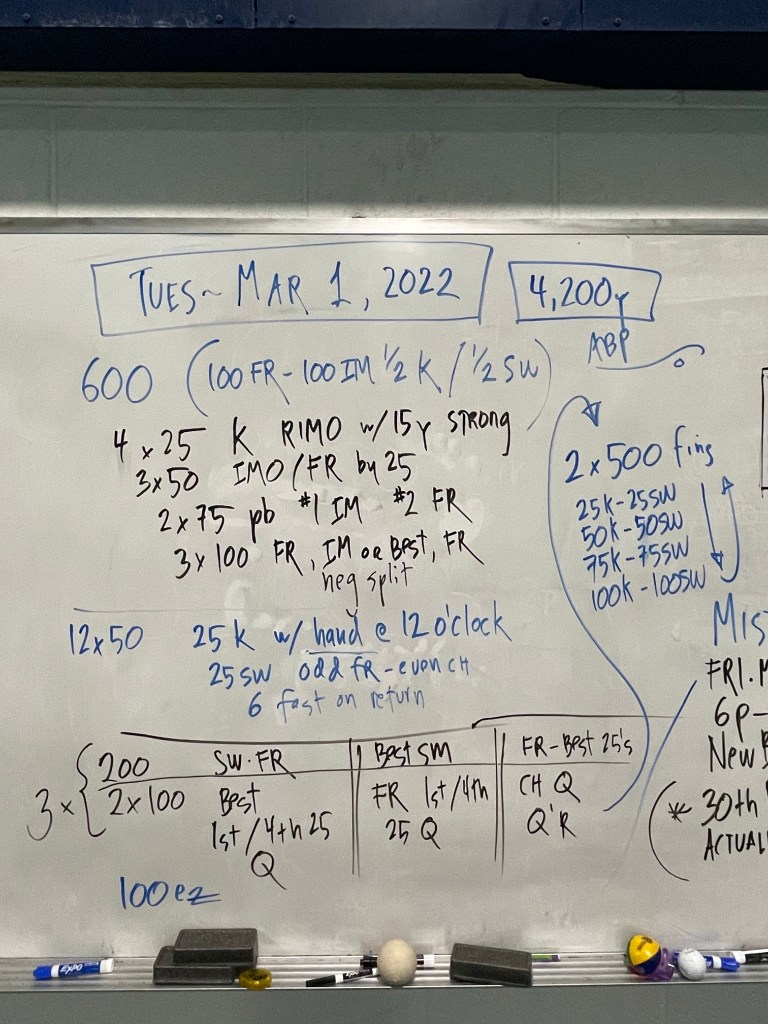 TUES~ MAR 1, 2022
4,200y
ABP
600 (100 FR-100 IM 1/2 K / 1/2 SW)
4 x 25 K RIMO w/ 15y strong
3x50 IMO/FR by 25
2 x 75 pb #1 IM #2 FR
3 x 100 FR, IM or Best, FR
neg split
2 x 500 fins
25K-25SW
50K-50SW
75K-75SW
100K-100SW
12x50 25 K w/ hand @ 12 o'clock
25 SW odd FR-even CH
6 fast on return
3 x { 200 SW·FR
2 x 100 Best
1st/4th 25
Q
Best SM
FR 1st/4th
25 Q
FR-Best 25's
CH Q
Q'R
100 ez
FRI.
6p-
New
* 30th
EXPO